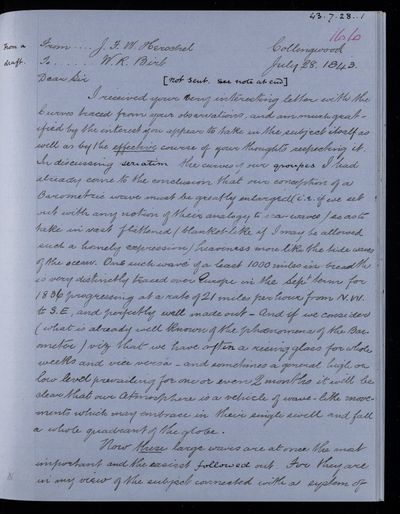 43.7.28..1
1616
From a
draft.
From.... J. F. W. Herschel
Collingwood
To...... W. R. Birt
July 28. 1843.
Dear Sir
[Not sent. see note at end]
I received your very interesting letter with the
Curves traced from your observations, and am much grat-
ified by the interest you appear to take in the subject itself as
well as by the effective course of your thoughts respecting it.
In discussing seriatim the curves of our groupes I had
already come to the conclusion that our conception of a
Barometric wave must be greatly enlarged (i.e. if we set
out with any notion of their analogy to sea-waves) so as to
take in vast flattened (blanket-like if I may be allowed
such a homely expression) heavings more like the tide waves
of the ocean. One such wave of a least 1000 miles in breadth
is very distinctly traced over Europe in the Sept. term for
1836 progressing at a rate of 21 miles per hour from N.W.
to S.E., and perfectly well made out - And if we consider
(what is already well known of the phenomena of the Bar-
ometer) viz that we have often a rising glass for whole
weeks and vice versa - and sometimes a general high or
low level prevailing for one or even 2 months it will be
clear that our atmosphere is a vehicle of wave-like move-
ments which may embrace in their single swell and fall
a whole quadrant of the globe.
Now these large waves are at once the most
important and the easiest followed out. For they are
in my view of the subject connected with a system of